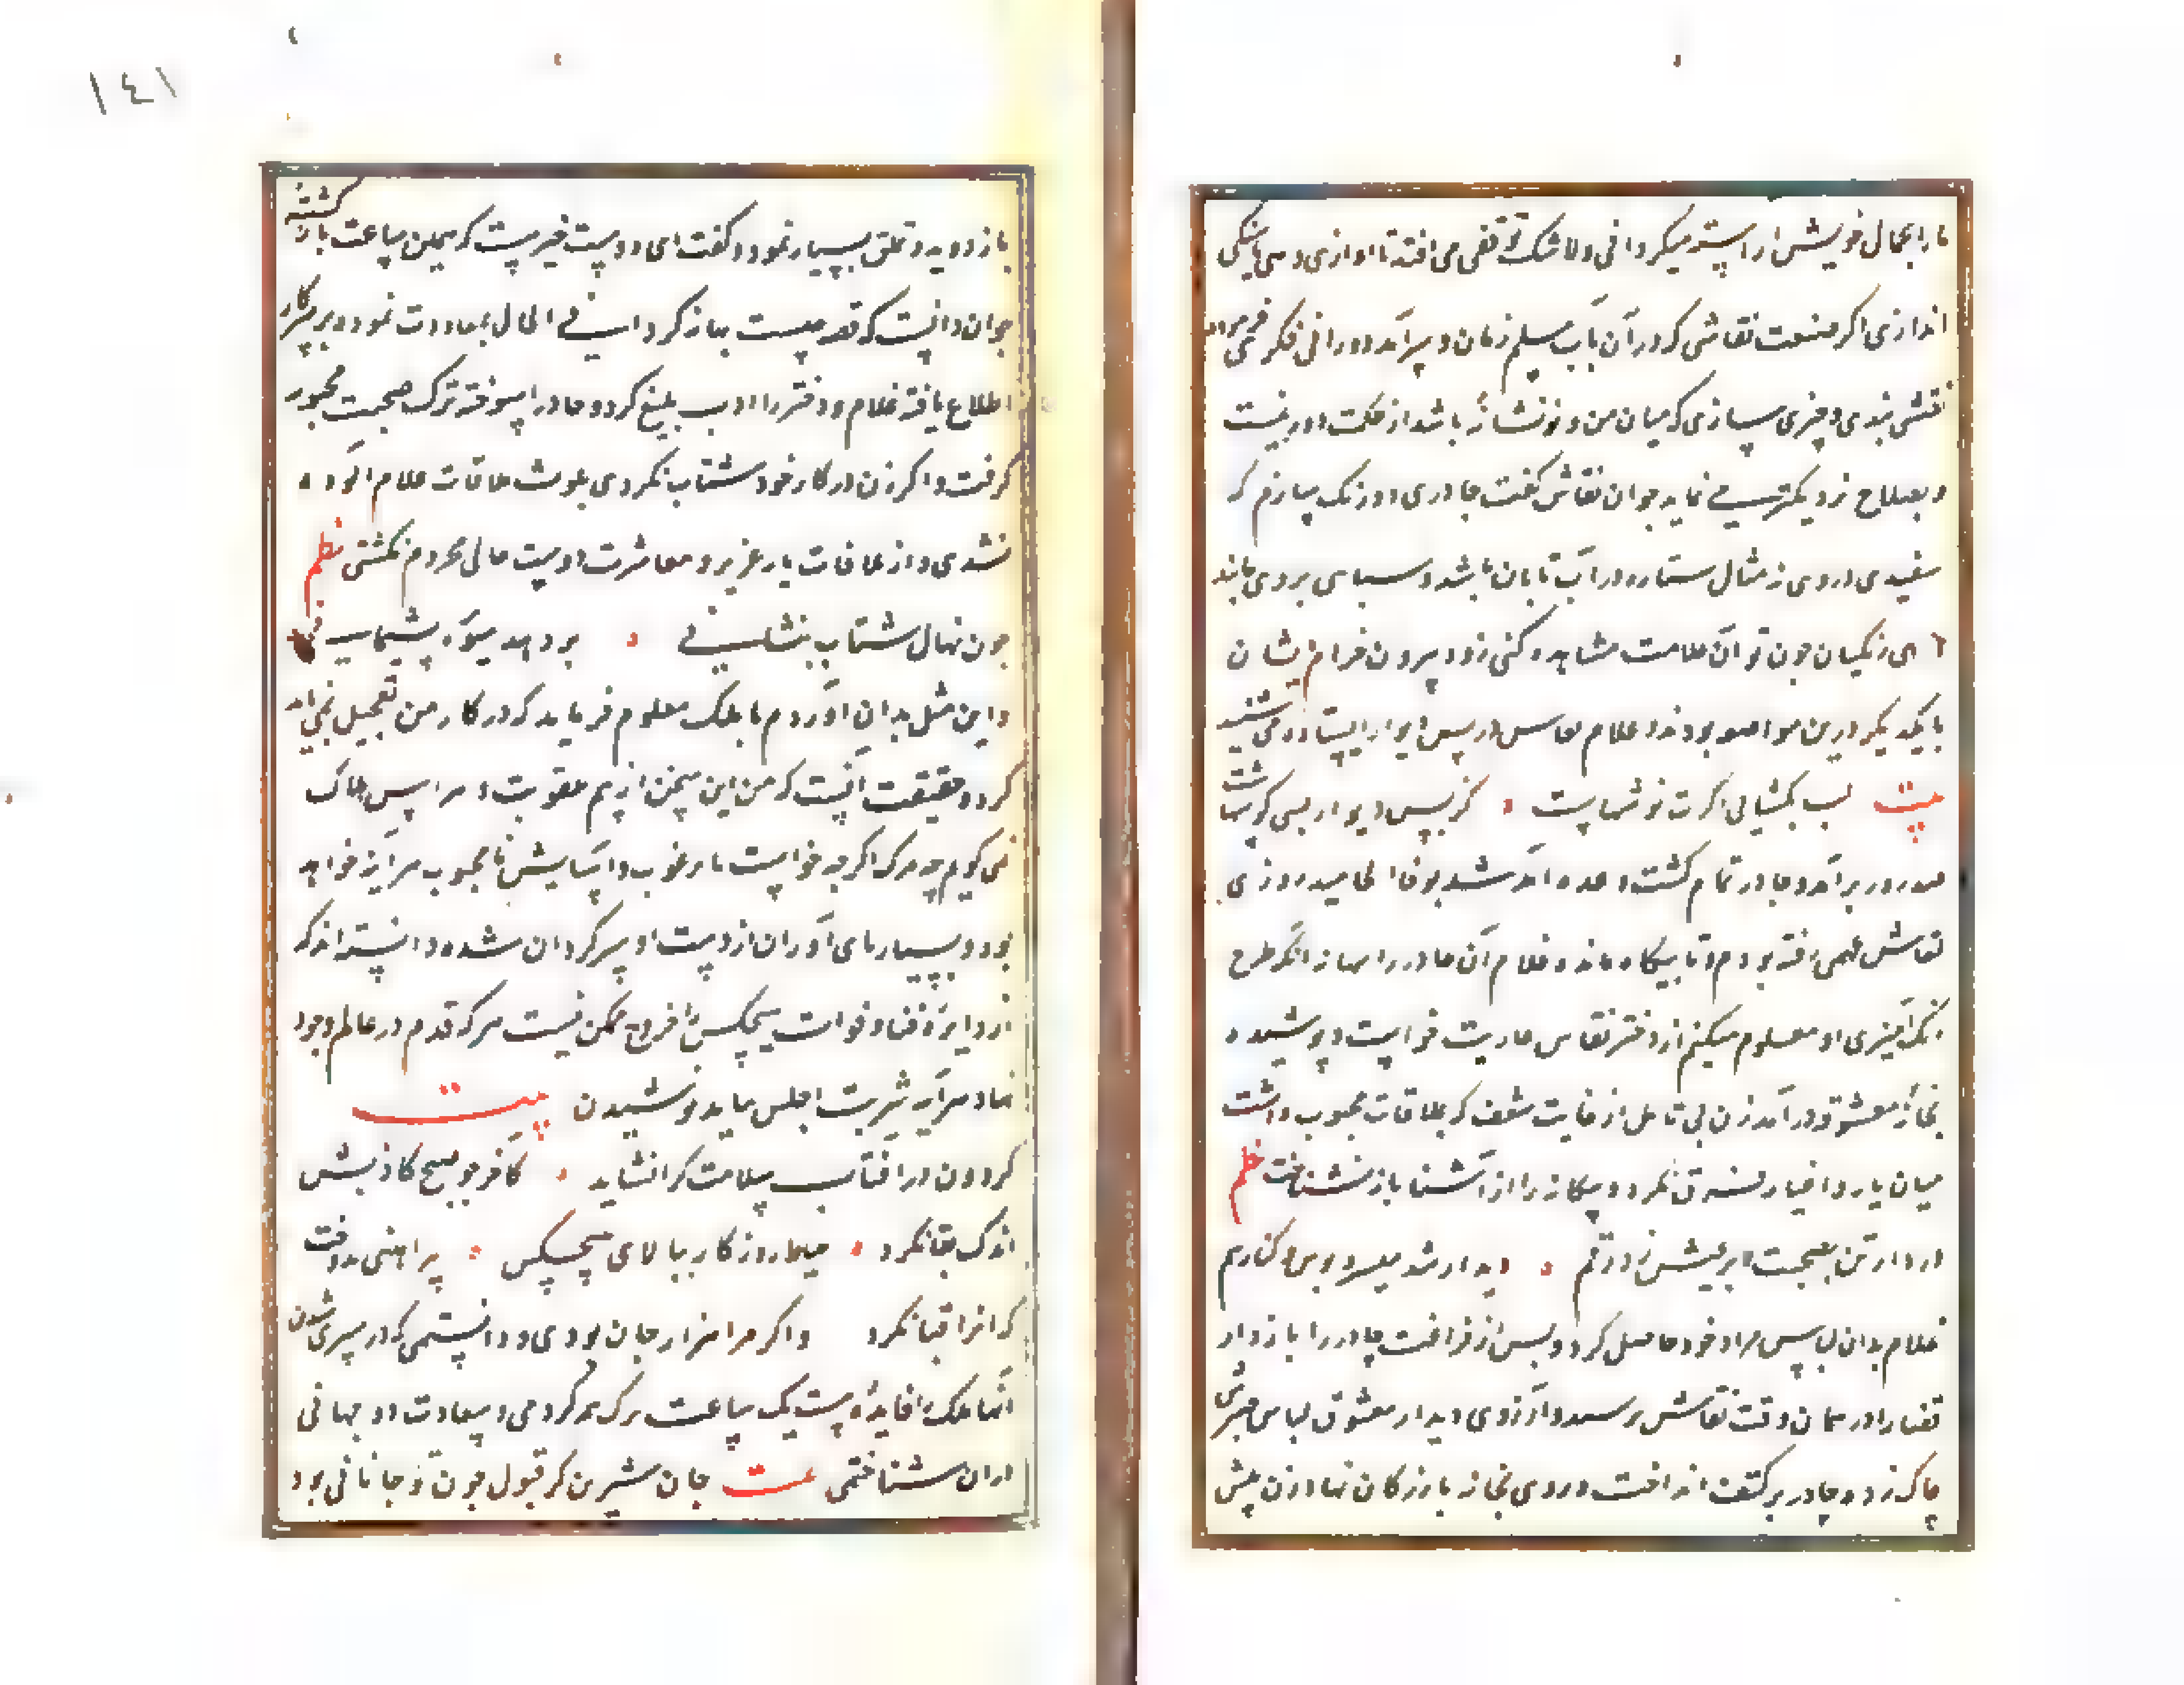 ما را بجمال خویش آراسته میکردانی ولا شک توقفی می افتد تا آوازی دهی یا سنکی
اندازی اکر صنعت نقاشی که در آن باب مسلم زمان و سرآمد دورانی فکر می فرمود
نقش بندی و چیزی سازی که میان من و تو نشانه باشد از حکمت دور نیست
و بصلاح نزدیکتر می نماید جوان نقاش کفت چادری دو رنک سازم که
سفیدی در وی مثال ستاره در آب تابان باشد و سیاهی بر وی مانند
موی زنکیان چون تو آن علامت مشاهده کنی زود بیرون خرام ایشان
با یکدیکر درین مواضعه بودند و غلام نقاش در پس دیوار ایستاده می شنید
بیت لب بکشایی اکرت نوشهاست کز پس دیوار بسی کوشهاست
بر آمد و چادر تمام کشت و وعده روزی
نقاش بمهمی رفته بود و تا بیکاه مانده غلام آن چادر را بهانه آنکه طرح
رنک آمیزی او معلوم میکنم از دختر نقاش عاریت خواست و پوشیده
بخانه معشوقه در آمد زن بی تامل از غایت شعف که بملاقات محبوب داشت
میان یار و اغیار فرق نکرد و بیکانه را از آشنا باز نشناخت نظم
غلام بدان لباس مراد خود حاصل کرد و پس از فراغت چادر را باز داد
قضا را در همان وقت نقاش برسید و آرزوی دیدار معشوق لباس صبرش
چاک زد و چادر بر کتف انداخت و روی بخانه بازرکان نهاد زن پیش
۱٤۱
باز دوید و تملق بسیار نمود و کفت ای دوست خیرست که همین ساعت باز کشته
جوان دانست که قصه چیست بهانه کرد فی الحال معاودت نمود و بر سر کار
اطلاع یافته غلام و دختر را ادب بلیغ کرد و چادر را سوخته ترک صحبت محبوبه
کرفت و اکر زن در کار خود شتاب نکردی بلوث ملاقات غلام آلوده
نشدی و از ملاقات یار عزیز و معاشرت دوست جانی محروم نکشتی نظم
چون نهال شتاب بنشانی بر دهد میوه پشیمانی
و این مثل بدان آوردم تا ملک معلوم فرماید که در کار من تعجیل نمی باید
کرد و حقیقت آنست که من این سخن از بیم عقوبت و هراس هلاک
نمی کویم چه مرک اکرچه خوابیست نامرغوب و آسایشی نامحبوب هر آینه خواهد
بود و بسیار پای آوران از دست او سر کردان شده دانسته اند که
از دایره فنا و فوات هیچکس را خروج ممکن نیست هر که قدم در عالم وجود
نهاد هر آینه شربت اجلش باید نوشیدن بیت
کردون در آفتاب سلامت کرا نشاند کآخر چو صبح کاذبش
اندک بقا نکرد خیاط روزکار ببالای هیچکس پیراهنی ندوخت
که آنرا قبا نکرد و اکر مرا هزار جان بودی و دانستمی که در سپری شدن
آنها ملک را فایده ایست یک ساعت ترک همه کردمی و سعادت دو جهانی
در آن شناختمی بیت جان شیرین کر قبول چون تو جانانی بود